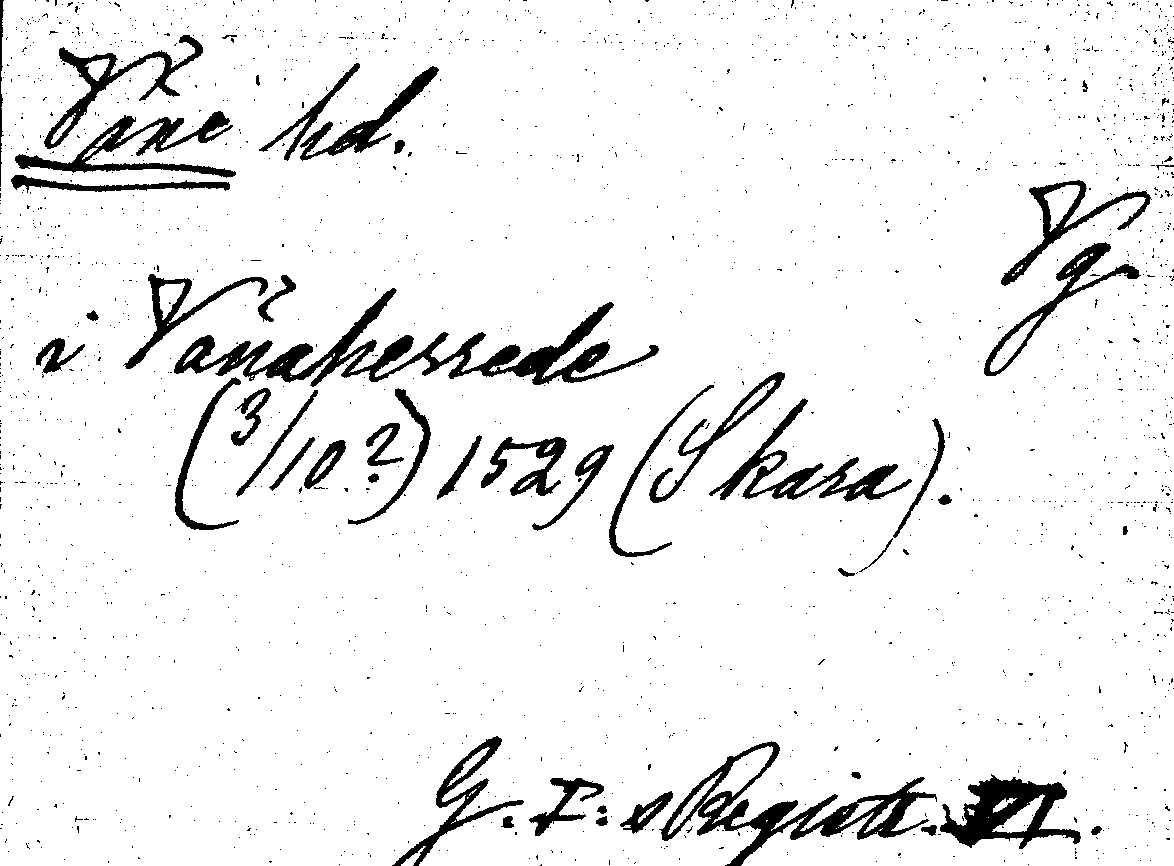 Väne hd.
Vg.
i Vanaherrede
(3/10?) 1529 (Skara).
G. I:s Registr. VI.